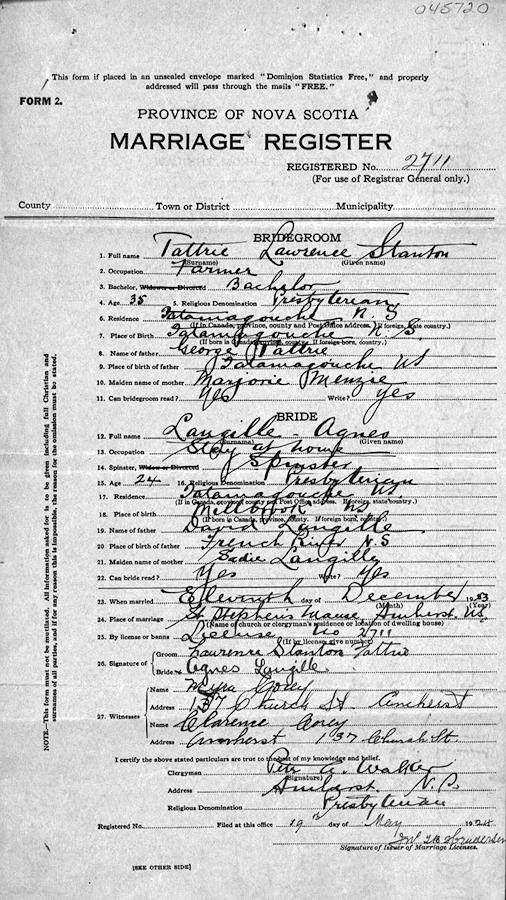 045720
This form if placed in an unsealed envelope marked "Dominion Statistics Free," and properly
addressed will pass through the mails "FREE."
FORM 2.
PROVINCE OF NOVA SCOTIA
MARRIAGE REGISTER
REGISTERED No. 2711
(For use of Registrar General only.)
County Town or District Municipality
BRIDEGROOM
1. Full name Tattrie Lawrence Stanton
(Surname) (Given name)
2. Occupation Farmer
3. Bachelor, Widower or Divorced Bachelor
4. Age 35 5. Religious Denomination Presbyterian
6. Residence Tatamagouche N. S
(If in Canada, province, county and Post Office address. If foreign, state country.)
7. Place of Birth Tatamagouche N. S
(If born in Canada, province, county. If foreign born, country.)
8. Name of father George Tattrie
9. Place of birth of father Tatamagouche NS
10. Maiden name of mother Marjorie Menzie
11. Can bridegroom read? Yes Write? Yes
BRIDE
12. Full name Langille Agnes
(Surname) (Given name)
13. Occupation Stay at home
14. Spinster, Widow or Divorced Spinster
15. Age 24 16. Religious Denomination Presbyterian
17. Residence Tatamagouche NS.
(If in Canada, province, county and Post Office address. If foreign, state country.)
18. Place of Birth Millbrook NS
(If born in Canada, province, county. If foreign born, country.)
19. Name of father David Langille
20. Place of birth of father French River N.S
21. Maiden name of mother Sadie Langille
22. Can bride read? Yes Write? Yes
23. When married Eleventh day of December 1923
(Month) (Year)
24. Place of marriage St Stephens Manse Amherst NS.
(Name of church or clergyman's residence or location of dwelling house)
25. By license or banns License No 2711
(If by license give number)
26. Signature of Groom Lawrence Stanton Tattrie
Bride Agnes Langille
27. Witnesses Name Myra Corey
Address 137 Church St. Amherst
Name Clarence Corey
Address Amherst 137 Church St.
I certify the above stated particulars are true to the best of my knowledge and belief.
Clergyman A. Walker
(Signature)
Address Amherst, N.S.
Religious Denomination Presbyterian
Registered No. Filed at this office 19th day of May 1924
Signature of Issuer of Marriage Licenses.
[SEE OTHER SIDE]
NOTE—This form must not be mutilated. All information asked for is to be given including full Christian and
surnames of all parties, and if for any reason this is impossible, the reason for the omission must be stated.